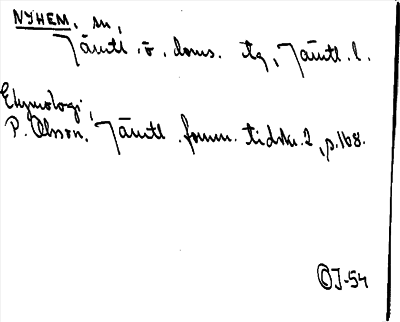 NYHEM, sn,
Jämtl. ö. doms. tg, Jämtl. l.
Etymologi,
P. Olsson. Jämtl. fornm. tidskr. 2, p. 168.
ⒸJ-54